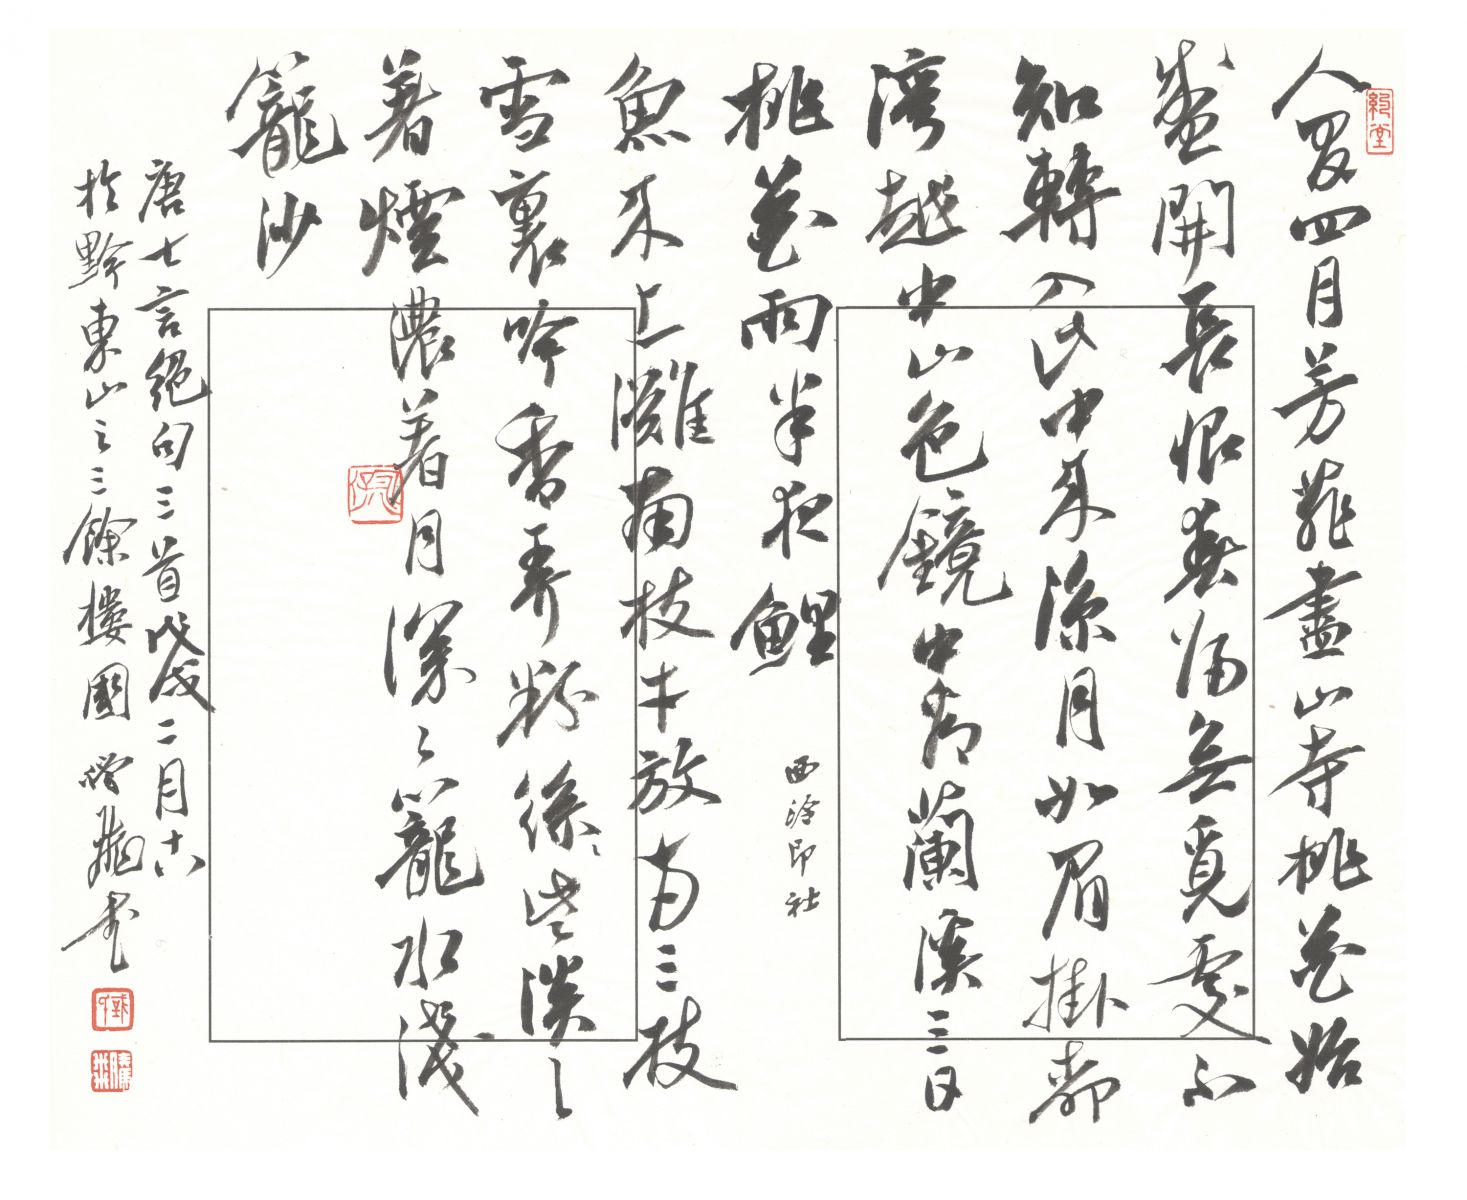 約堂
人間四月芳菲盡山寺桃花始
盛開長恨春歸無覓處不
知轉入此中來涼月如眉掛柳
灣越中山色鏡中看蘭溪三日
桃花雨半夜鯉
西泠印社
魚來上灘南枝才放兩三枝
雪裏吟香弄粉些淡々
著煙濃著月深々籠水淺
籠沙
唐七言絕句三首戊戌二月十六
於黔東山之三餘樓圃騰書